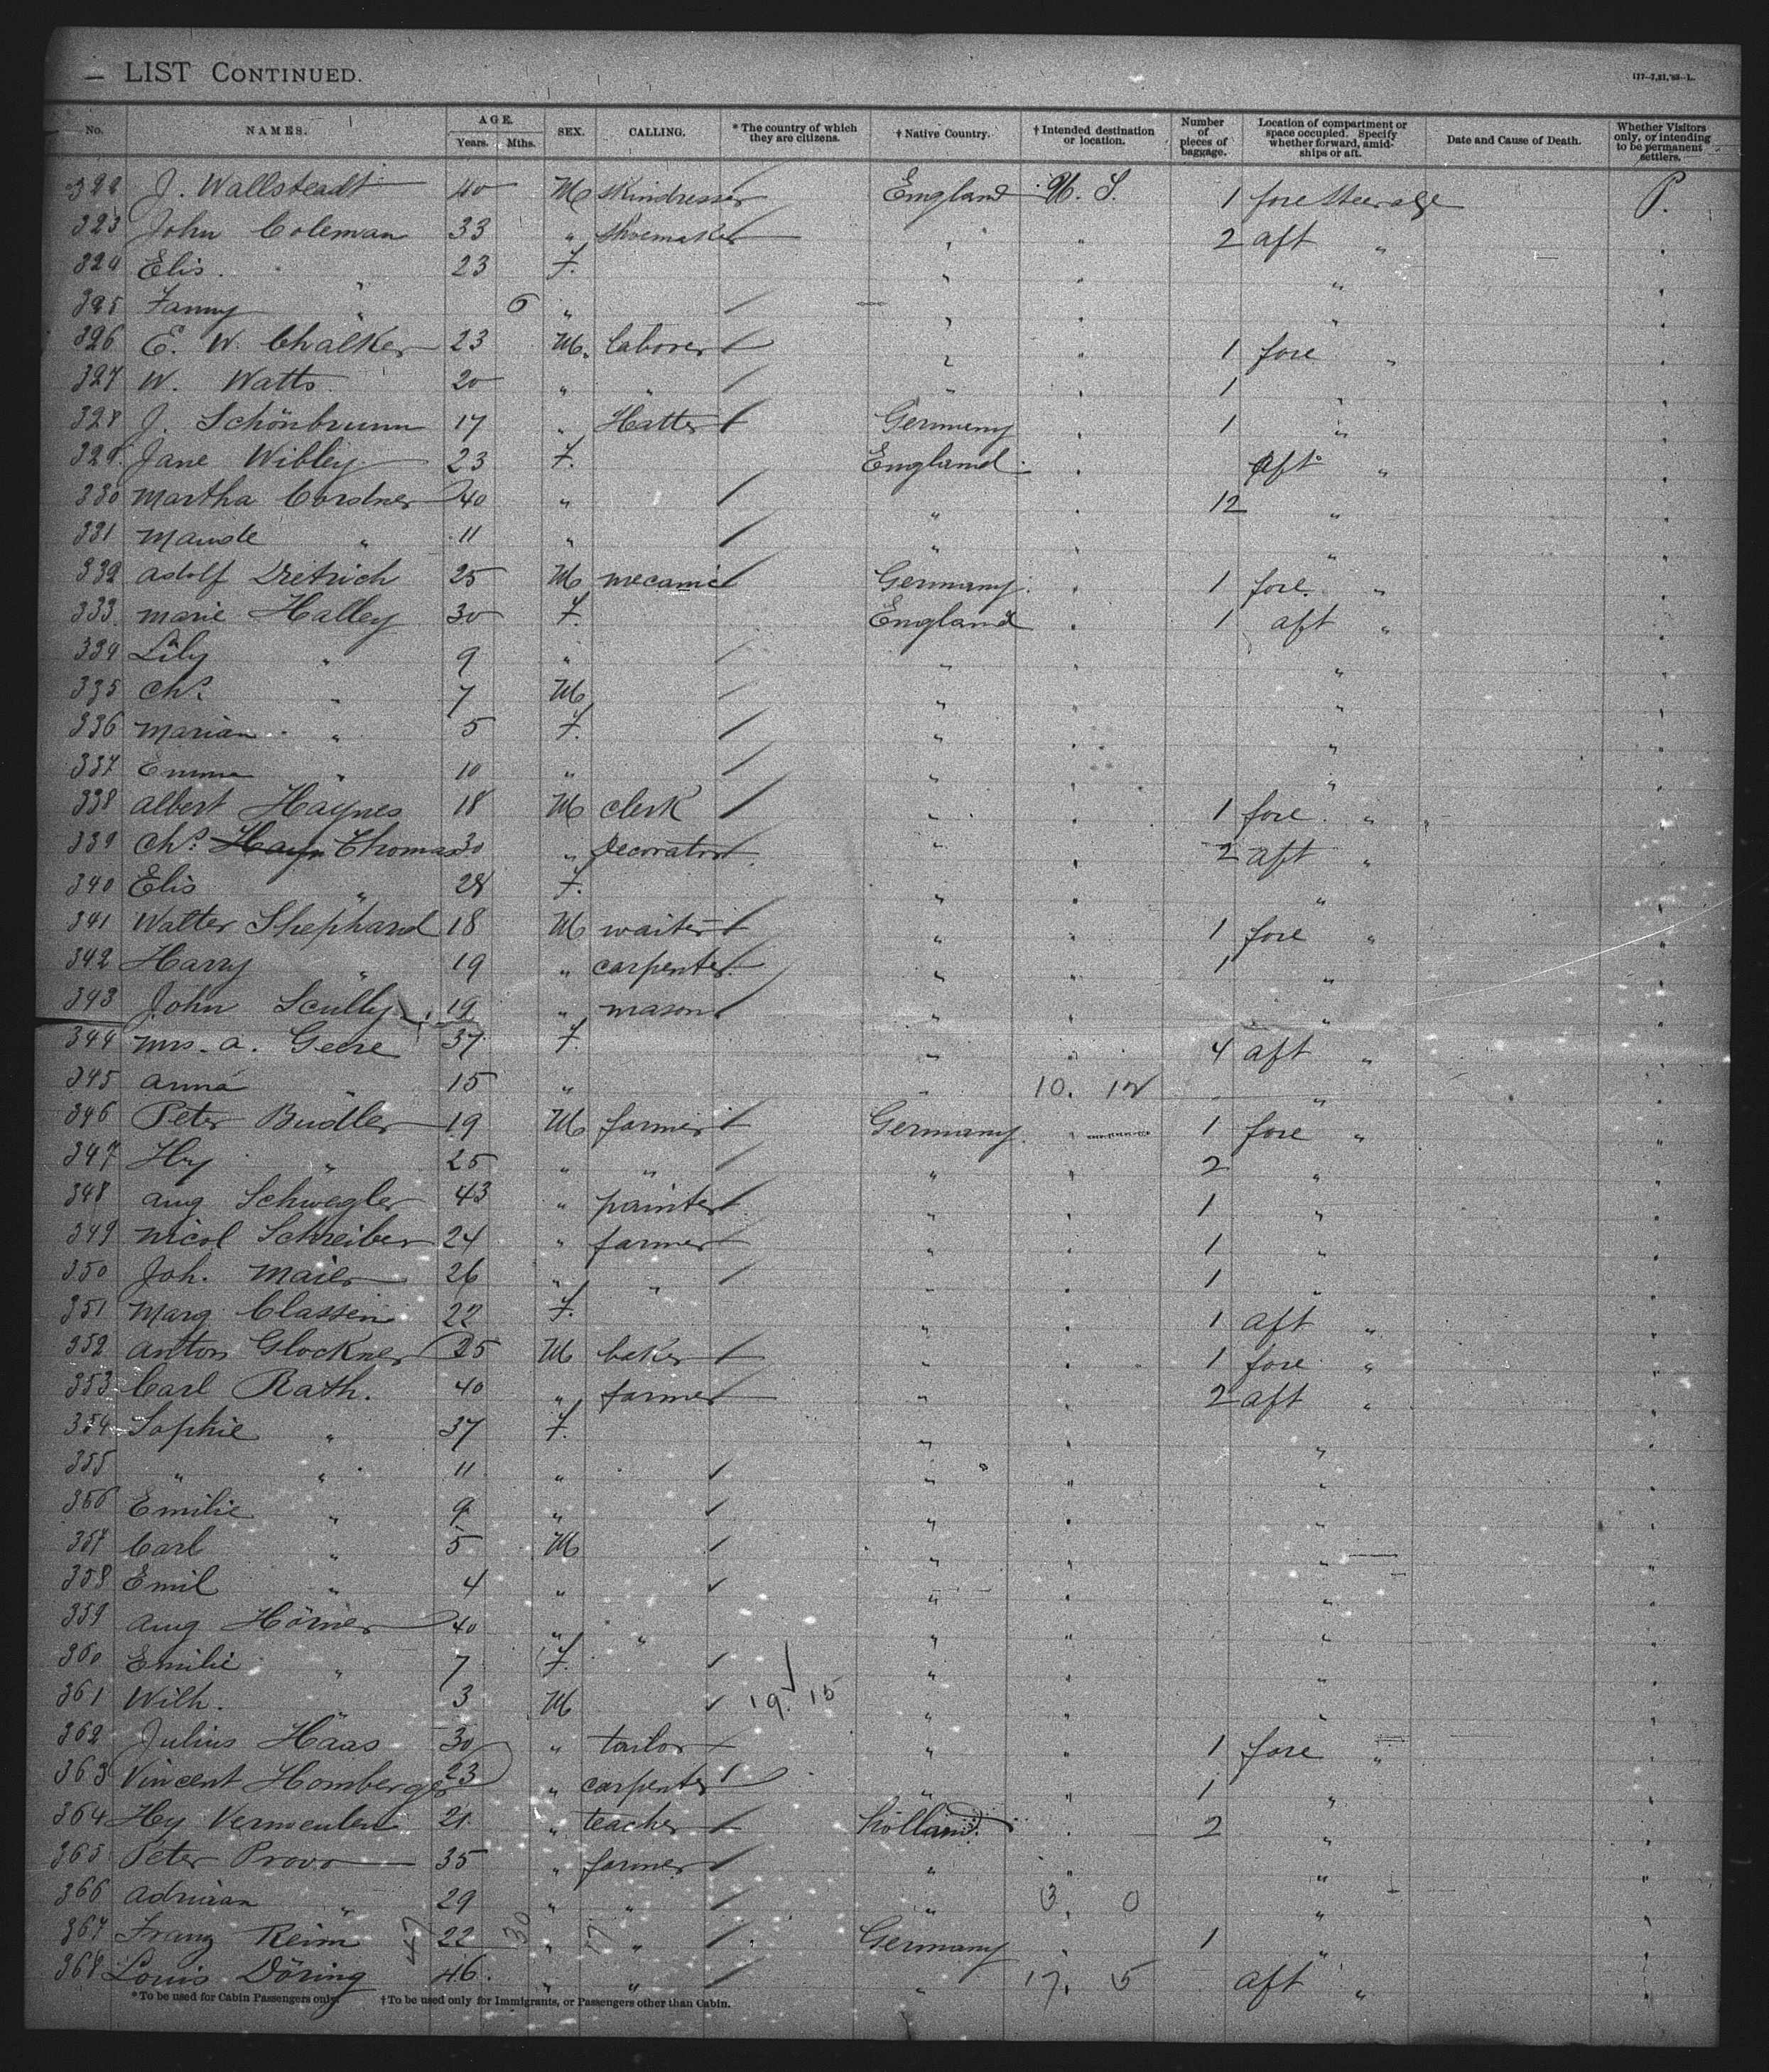 — LIST CONTINUED. 117--7,21,'88--L.
No. NAMES. AGE. Years. Mths. SEX. CALLING. *The country of which they are citizens. †Native Country. †Intended destination or location. Number of pieces of baggage. Location of compartment or space occupied. Specify whether forward, amidships or aft. Date and Cause of Death. Whether Visitors only, or intending to be permanent settlers.
322 J. Wallsteadt 40 M skindresser England U. S. 1 fore Steerage P.
323 John Coleman 33 " shoemaker " " 2 aft " "
324 Elis. " 23 F. " " " "
325 Fanny " 6 " " " " "
326 E. W. Chalker 23 M. laborer " " 1 fore " "
327 W. Watts 20 " " " " 1 " "
328 J. Schönbrunn 17 " Hatter Germeny " 1 " "
329 Jane Wibley 23 F. England " aft " "
330 Martha Cordner 40 " " " 12 " "
331 Maude " 11 " " " " "
332 Adolf Dietrich 25 M mecanic Germany " 1 fore " "
333 Marie Halley 30 F. England " 1 aft " "
334 Lily " 9 " " " " "
335 Chs. " 7 M " " " "
336 Marian " 5 F. " " " "
337 Emma " 10 " " " " "
338 Albert Haynes 18 M clerk " " 1 fore " "
339 Chs. Hayn Thomas 30 " Decorator " " 2 aft " "
340 Elis " 28 F. " " " "
341 Walter Shephard 18 M waiter " " 1 fore " "
342 Harry " 19 " carpenter " " 1 " "
343 John Scully 19 " mason " " " "
344 Mrs. A. Geere 37 F. " " 4 aft " "
345 Anna " 15 " " 10. 12 " "
346 Peter Budler 19 M farmer Germany " 1 fore " "
347 Hy " 25 " " " " 2 " "
348 Aug Schwegler 43 " painter " " 1 " "
349 Nicol Schreiber 24 " farmer " " 1 " "
350 Joh. Maier 26 " " " " 1 " "
351 Marg Classen 22 F. " " 1 aft " "
352 Anton Glockner 25 M baker " " 1 fore " "
353 Carl Rath. 40 " farmer " " 2 aft " "
354 Sophie " 37 F. " " " "
355 " " 11 " " " " "
356 Emilie " 9 " " " " "
357 Carl " 5 M " " " "
358 Emil " 4 " " " " "
359 Aug Hörner 40 " " " " " "
360 Emilie " 7 F. " " " "
361 Wilh. " 3 M 19. 15 " " " "
362 Julius Haas 30 " tailor " " 1 fore " "
363 Vincent Homberger 23 " carpenter " " 1 " "
364 Hy Vermeulen 21 " teacher holland " 2 " "
365 Peter Provo 35 " farmer " " " "
366 Adriaan " 29 " " " 3. 0 " "
367 Franz Reim 47 22 30 " 17 " Germany " 1 " "
368 Louis Döring 46. " " " 17. 5 aft " "
*To be used for Cabin Passengers only. †To be used only for Immigrants, or Passengers other than Cabin.